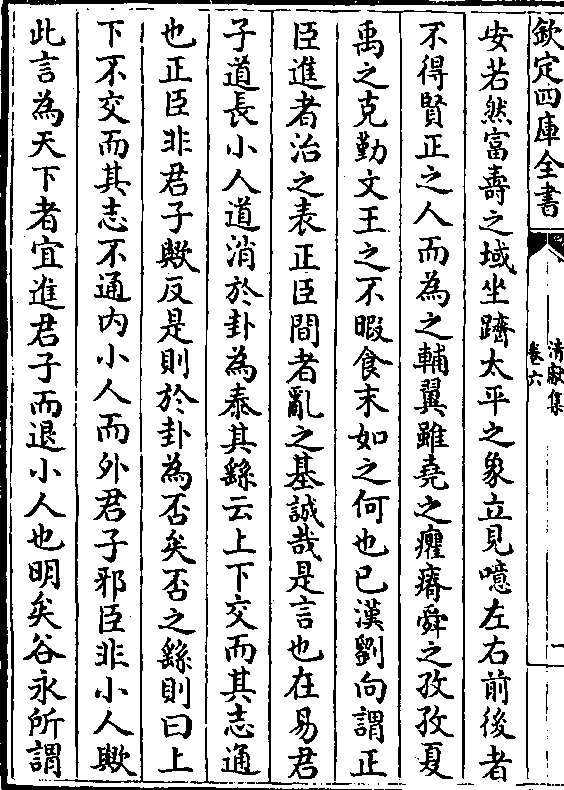 欽定四庫全書
清獻集
卷六
一
安若然富壽之域坐躋太平之象立見噫左右前後者
不得賢正之人而為之輔翼雖堯之癯瘠舜之孜孜夏
禹之克勤文王之不暇食末如之何也已漢劉向謂正
臣進者治之表正臣間者亂之基誠哉是言也在易君
子道長小人道消於卦為泰其繇云上下交而其志通
也正臣非君子歟反是則於卦為否矣否之繇則曰上
下不交而其志不通內小人而外君子邪臣非小人歟
此言為天下者宜進君子而退小人也明矣谷永所謂